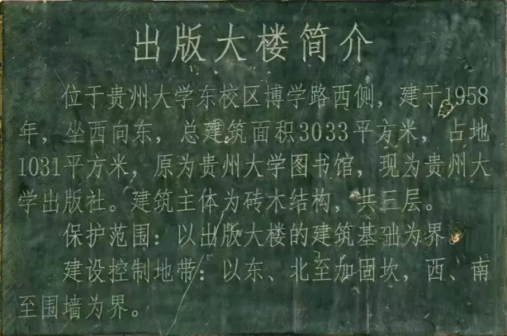 出版大楼简介
位于贵州大学东校区博学路西侧，建于1958
年，坐西向东，总建筑面积3033平方米，占地
1031平方米，原为贵州大学图书馆，现为贵州大
学出版社。建筑主体为砖木结构，共三层。
保护范围：以出版大楼的建筑基础为界。
建设控制地带：以东、北至加固坎，西、南
至围墙为界。